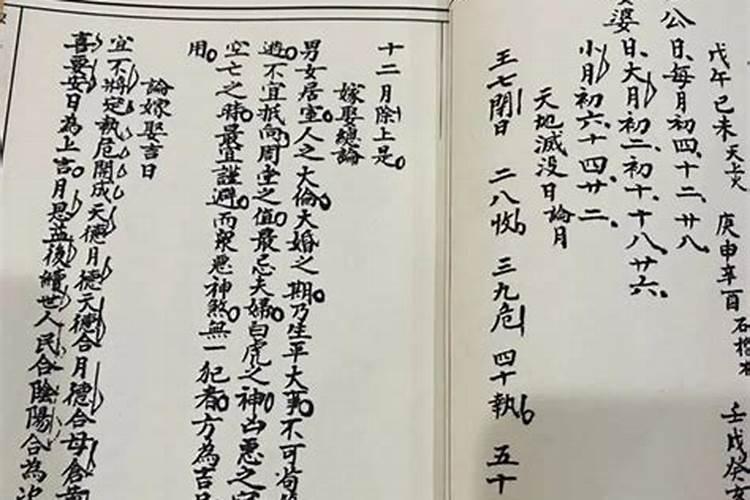 戊午己未天上火　庚申辛酉石榴木　壬戌癸
公日、每月初四、十二、廿八
婆日、大月初二、初十、十八、廿六、
小月初六十四廿二、
天地滅没日論月
王七閉日　二八收　三九危　四十執　五十
十二月除上是
嫁娶總論
男女居室人之大倫大婚之期乃生平大事不可
避不宜抵向周堂之值最忌夫婦白虎之神凶惡之
空亡之時最宜謹避而眾惡神煞無一犯者方為吉
用
論嫁娶吉日
宜不將定執危開成天德月德天德合月德合母倉
喜要安日為上吉月恩益後續世人民合陰陽合為次